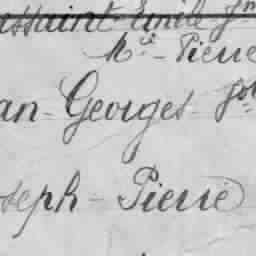 assaint Emile Jn
Mie - Pierre
an - Georges - Jsh
seph - Pierre